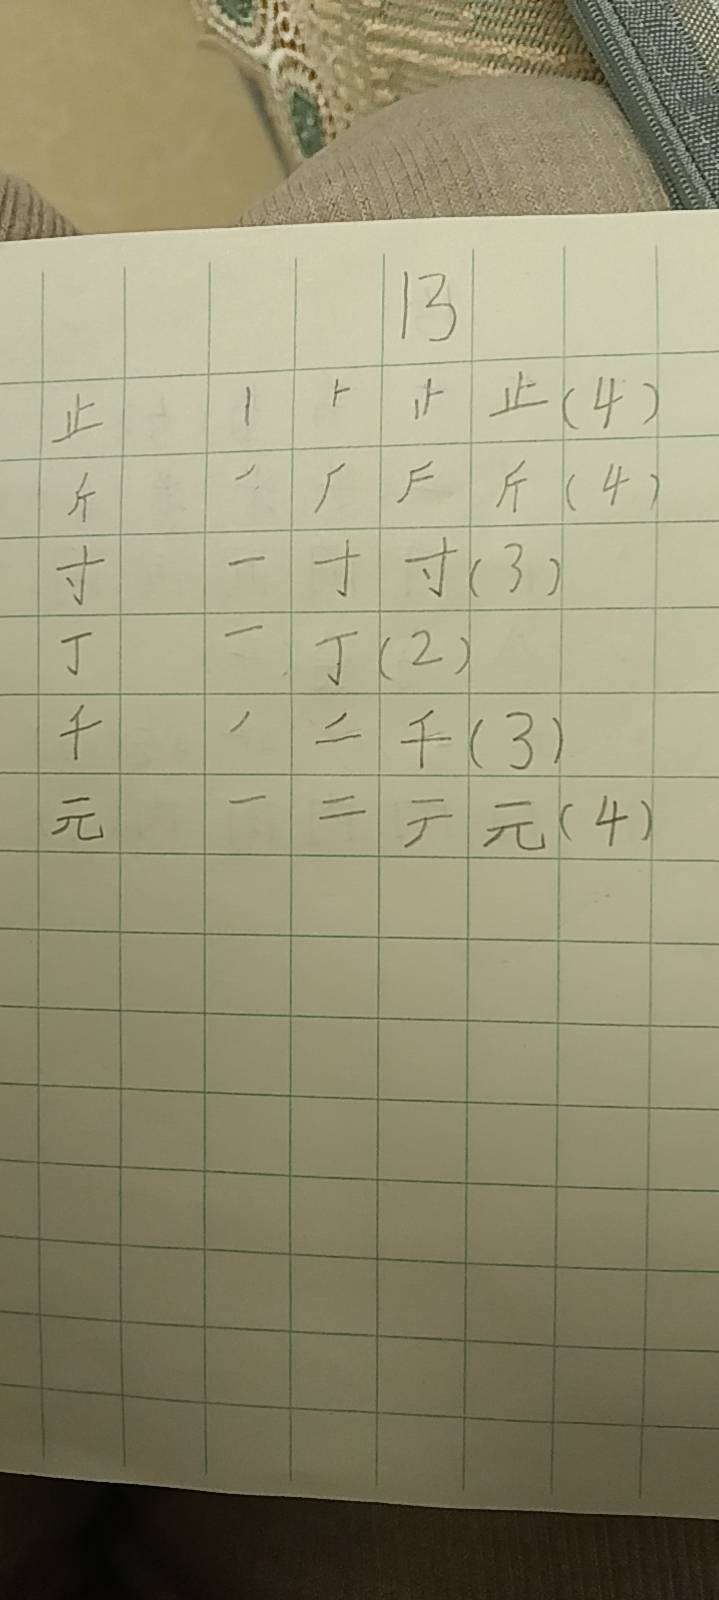 13
止 丨 ⺊ 止 (4)
斤 ノ 厂 斤 (4)
寸 一 十 寸 (3)
丁 一 丁 (2)
千 ノ 二 千 (3)
元 一 二 元 (4)